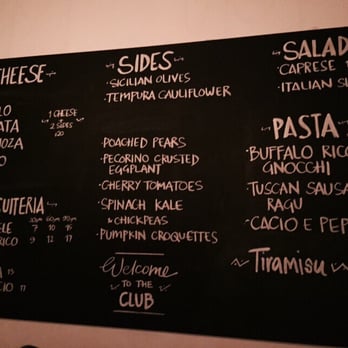 CHEESE
1 CHEESE
+
2 SIDES
120
30gm 60gm 90gm
7 10 15
9 12 17
15
17
SIDES
· SICILIAN OLIVES
· TEMPURA CAULIFLOWER
· POACHED PEARS
· PECORINO CRUSTED
EGGPLANT
· CHERRY TOMATOES
· SPINACH KALE
& CHICKPEAS
· PUMPKIN CROQUETTES
Welcome
TO THE
CLUB
SALAD
· CAPRESE
· ITALIAN
PASTA
· BUFFALO RICO
GNOCCHI
· TUSCAN SAUSA
RAGU
· CACIO E PEP
~ Tiramisu ~